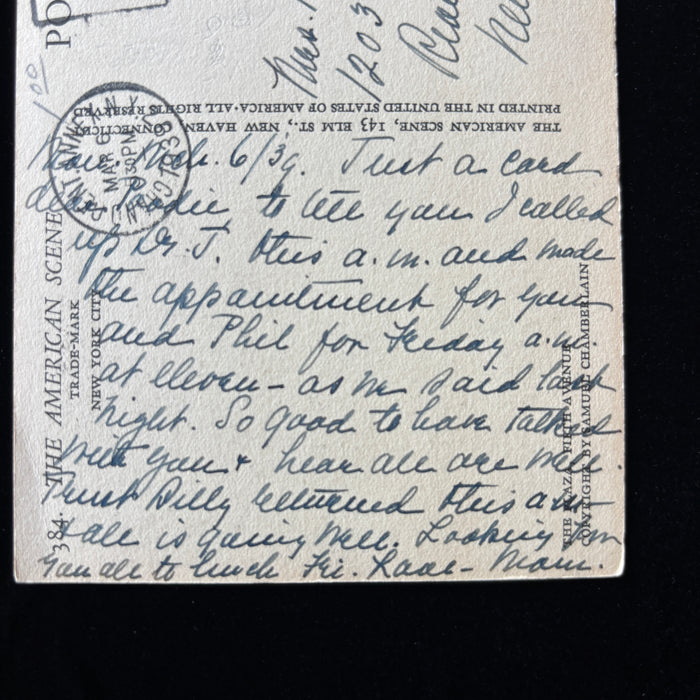 PO
1.00
Mrs.
1203
Mon. Mch. 6/39. Just a card
dear to tell you I called
up Dr. J. this a.m. and made
the appointment for you
and Phil for Friday a.m.
at eleven - as we said last
night. So good to have talked
with you + hear all are well.
Trust Billy returned this a.m.
+ all is going well. Looking for
you all to lunch Fri. Love - Mom.
THE AMERICAN SCENE, 143 ELM ST., NEW HAVEN, CONNECTICUT
PRINTED IN THE UNITED STATES OF AMERICA · ALL RIGHTS RESERVED
384. THE AMERICAN SCENE
TRADE-MARK
NEW YORK CITY
THE PLAZA, FIFTH AVENUE
COPYRIGHT BY SAMUEL CHAMBERLAIN
GRAND CENT. ANNEX N.Y.
MAR 6
30 PM
1939